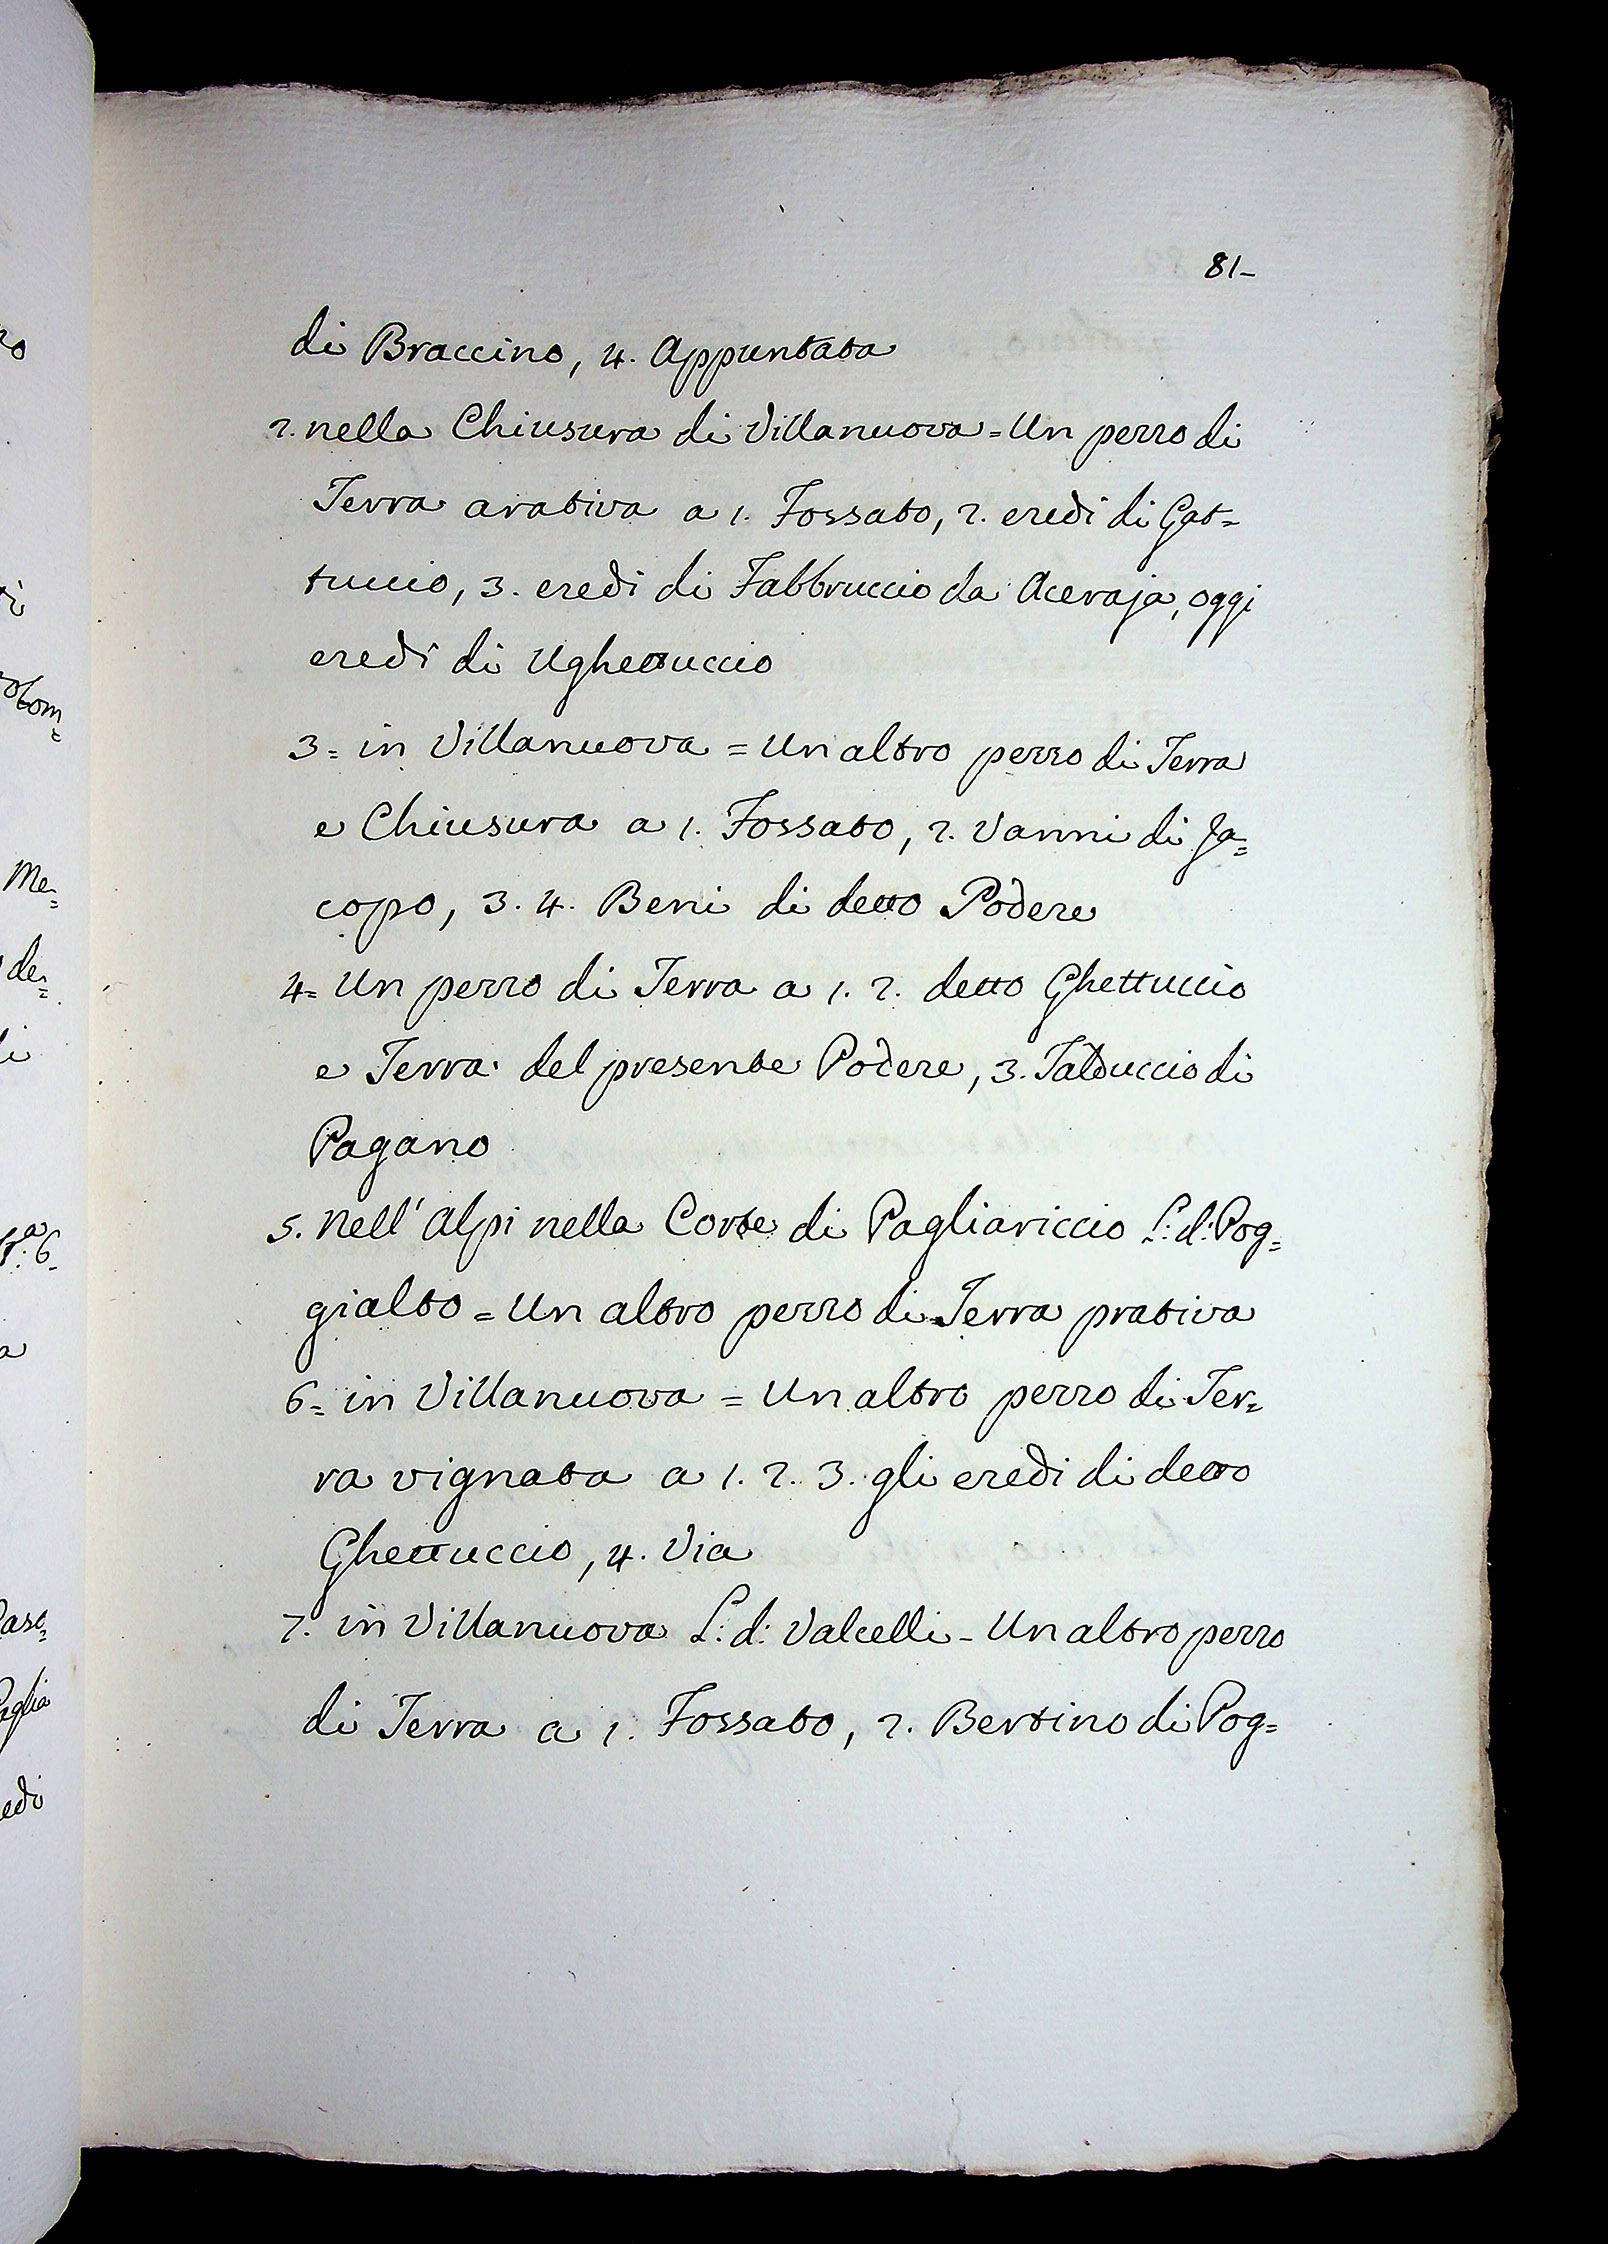 81-
di Braccino, 4. Appuntata
2. nella Chiusura di Villanuova = Un pezzo di
Terra arativa a 1. Fossato, 2. eredi di Gat=
tuccio, 3. eredi di Fabbruccio da Aceraja, oggi
eredi di Ughettuccio
3= in Villanuova = Un altro pezzo di Terra
e Chiusura a 1. Fossato, 2. Vanni di Ja=
copo, 3. 4. Beni di detto Podere
4= Un pezzo di Terra a 1. 2. detto Ghettuccio
e Terra del presente Podere, 3. Talduccio di
Pagano
5. Nell' Alpi nella Corte di Pagliariccio L: d: Pog=
gialto = Un altro pezzo di Terra prativa
6= in Villanuova = Un altro pezzo di Ter=
ra vignata a 1. 2. 3. gli eredi di detto
Ghettuccio, 4. Via
7. in Villanuova L: d: Valcelli - Un altro pezzo
di Terra a 1. Fossato, 2. Bertino di Pog=